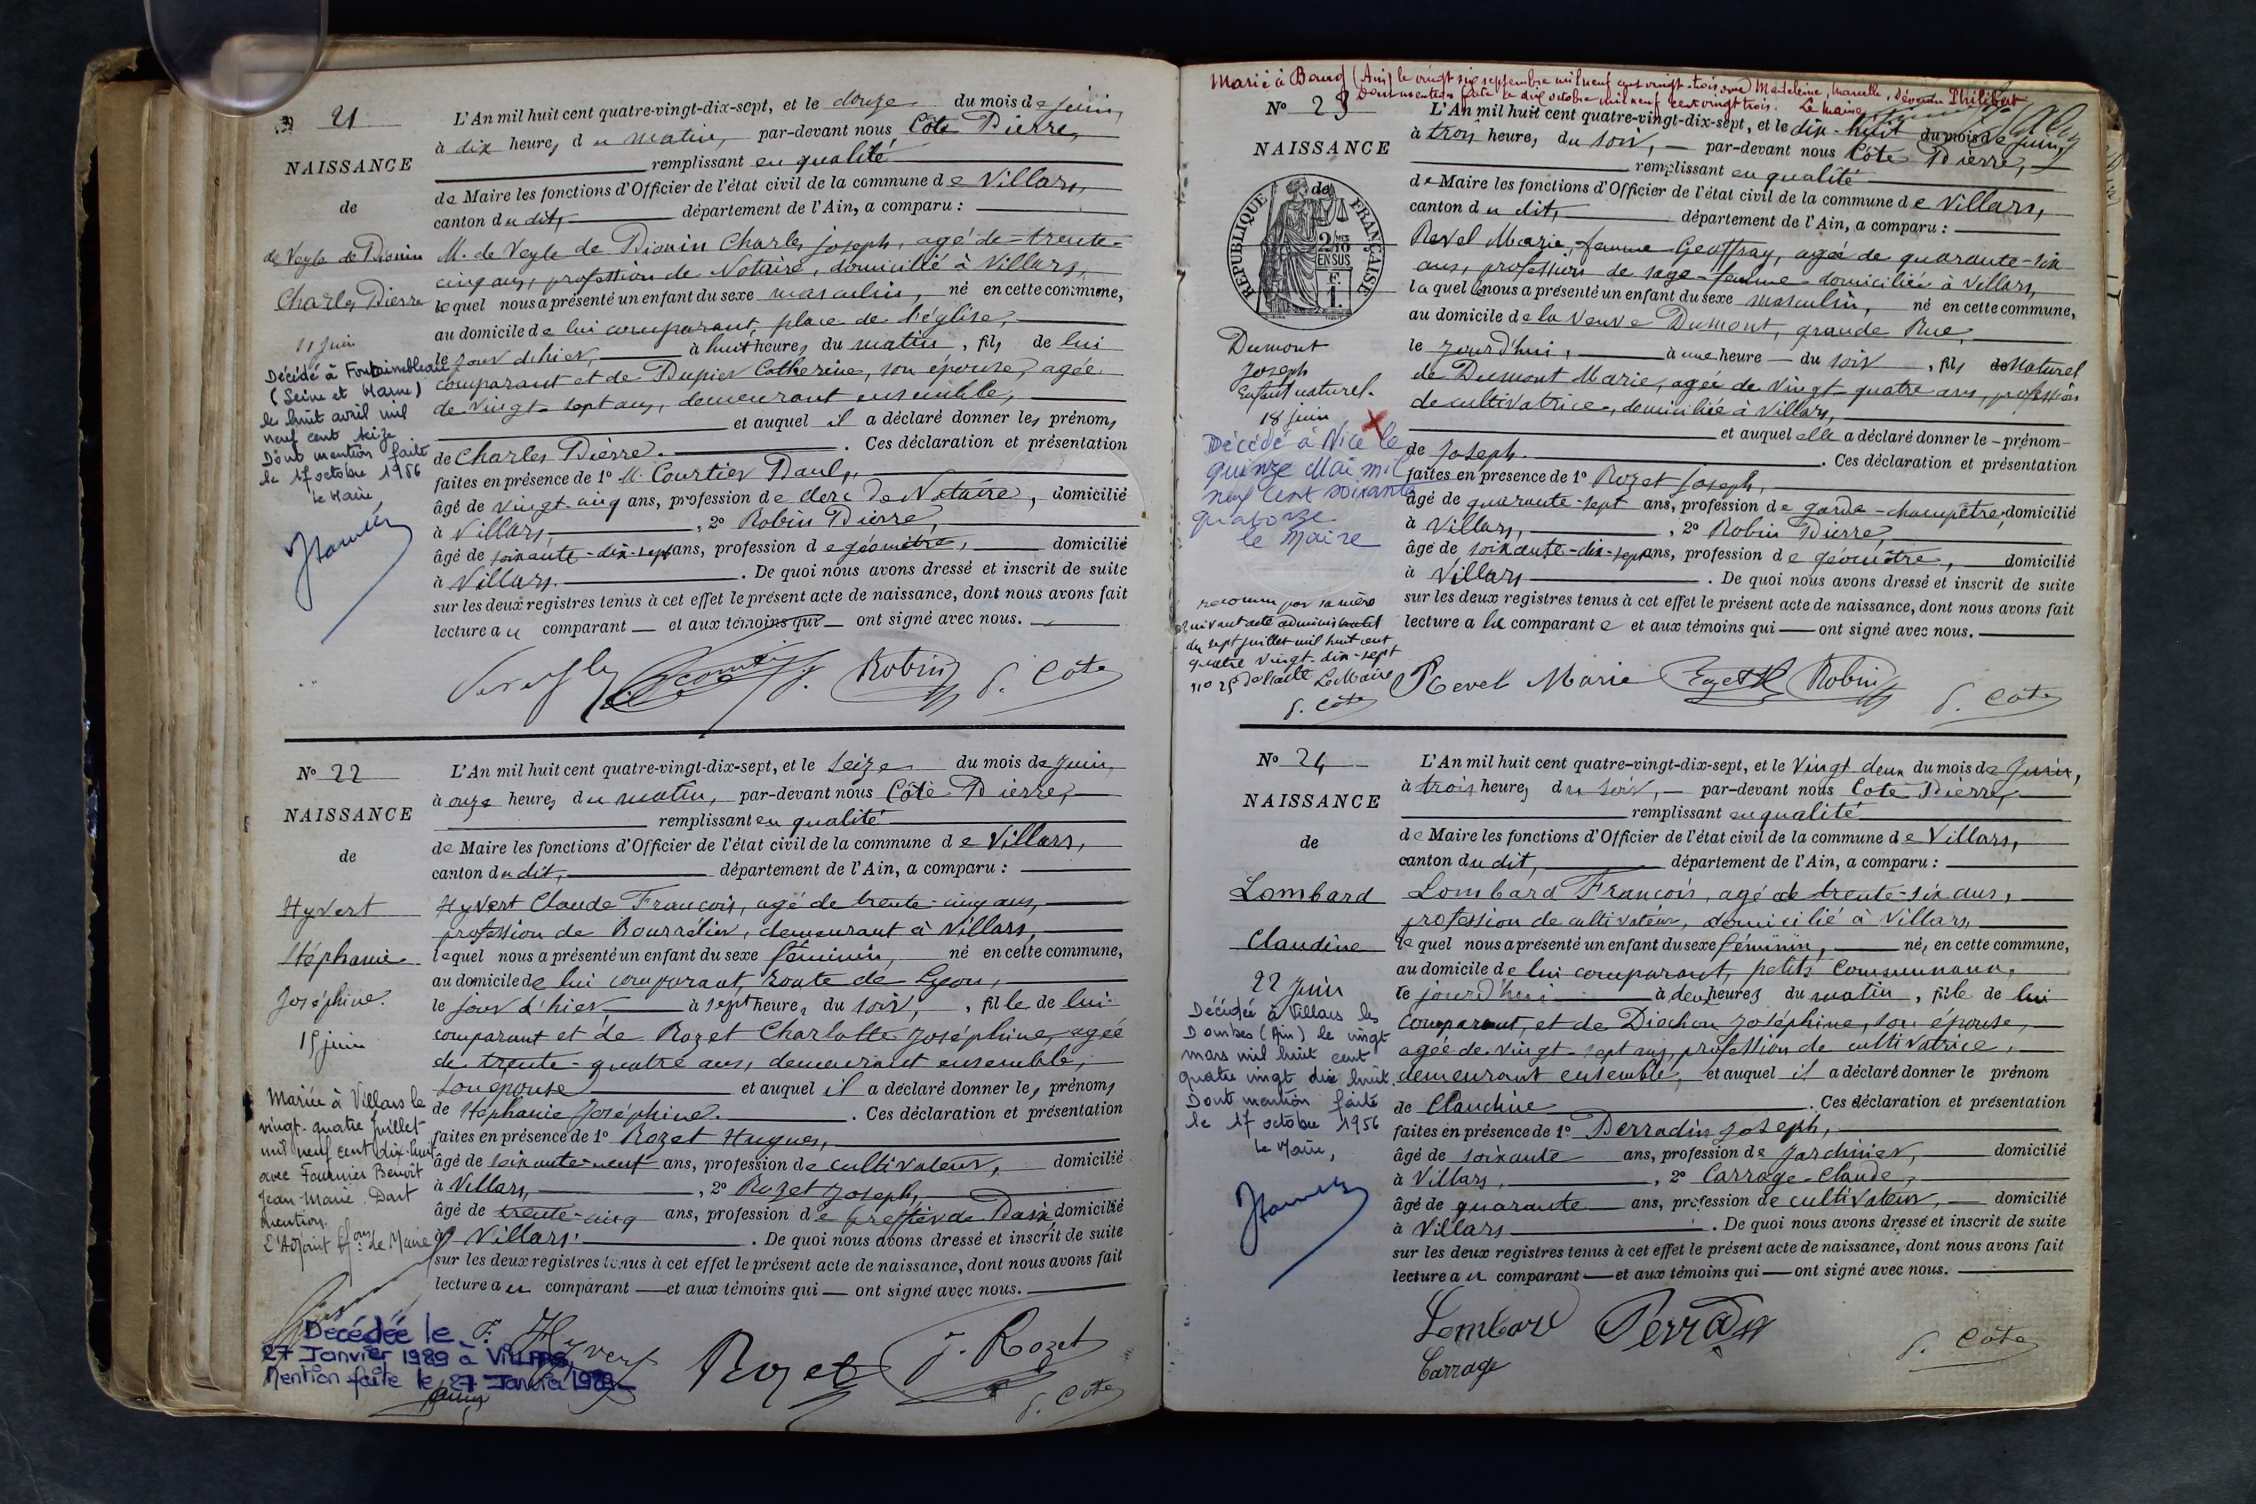 N° 21
NAISSANCE
de
de Veyle de Dionin
Charles Pierre
11 juin
Décédé à Fontainebleau
(Seine et Marne)
le huit avril mil
neuf cent seize
Dont mention faite
le 17 octobre 1956
Le Maire,
L'An mil huit cent quatre-vingt-dix-sept, et le douze du mois de juin,
à dix heures du matin, par-devant nous Côte Pierre,
remplissant en qualité
de Maire les fonctions d'Officier de l'état civil de la commune de Villars,
canton du dit, département de l'Ain, a comparu :
M. de Veyle de Dionin Charles Joseph, agé de trente-
cinq ans, profession de Notaire, domicilié à Villars,
lequel nous a présenté un enfant du sexe masculin, né en cette commune,
au domicile de lui comparant, place de l'église,
le jour d'hier, à huit heures du matin, fils de lui
comparant et de Dupier Catherine, son épouse, agée
de vingt-sept ans, demeurant ensemble,
et auquel il a déclaré donner les prénoms
de Charles Pierre. Ces déclaration et présentation
faites en présence de 1° M. Courtier Paul,
âgé de vingt-cinq ans, profession de clerc de Notaire, domicilié
à Villars, 2° Robin Pierre,
âgé de soixante-dix-sept ans, profession de géomètre, domicilié
à Villars. De quoi nous avons dressé et inscrit de suite
sur les deux registres tenus à cet effet le présent acte de naissance, dont nous avons fait
lecture au comparant et aux témoins qui ont signé avec nous.
Robin P. Côte
N° 22
NAISSANCE
de
Hyvert
Stéphanie
Joséphine.
15 juin
Mariée à Villars le
vingt-quatre juillet
mil neuf cent dix-huit
avec Fournier Benoît
Jean-Marie. Dont
mention.
L'Adjoint ff.ons de Maire
Décédée le
27 Janvier 1989 à Villars
Mention faite le 27 Janvier 1989
L'An mil huit cent quatre-vingt-dix-sept, et le seize du mois de juin,
à onze heures du matin, par-devant nous Côte Pierre,
remplissant en qualité
de Maire les fonctions d'Officier de l'état civil de la commune de Villars,
canton du dit, département de l'Ain, a comparu :
Hyvert Claude François, agé de trente-cinq ans,
profession de Bourrelier, demeurant à Villars,
lequel nous a présenté un enfant du sexe féminin, né en cette commune,
au domicile de lui comparant, route de Lyon,
le jour d'hier, à sept heures du soir, fille de lui
comparant et de Rozet Charlotte Joséphine, agée
de trente-quatre ans, demeurant ensemble,
son épouse et auquel il a déclaré donner les prénoms
de Stéphanie Joséphine. Ces déclaration et présentation
faites en présence de 1° Rozet Hugues,
âgé de soixante-neuf ans, profession de cultivateur, domicilié
à Villars, 2° Rozet Joseph,
âgé de trente-cinq ans, profession de Greffier de Paix domicilié
à Villars. De quoi nous avons dressé et inscrit de suite
sur les deux registres tenus à cet effet le présent acte de naissance, dont nous avons fait
lecture au comparant et aux témoins qui ont signé avec nous.
F. Hyvert Rozet J. Rozet
P. Côte
Marié à Bourg (Ain) le vingt six septembre mil neuf cent vingt-trois, avec Madeleine, Marcelle, Philibert
Dont mention faite le dix octobre mil neuf cent vingt trois. Le Maire,
N° 23
NAISSANCE
de
RÉPUBLIQUE FRANÇAISE
2/10 EN SUS
F. 1.
Dumont
Joseph
Enfant naturel.
18 juin
Décédé à Nice le
quinze Mai mil
neuf cent soixante
quatorze
le Maire
reconnu par sa mère
suivant acte administratif
du sept juillet mil huit cent
quatre vingt-dix-sept
n° 25 de l'acte Le Maire
P. Côte
L'An mil huit cent quatre-vingt-dix-sept, et le dix-huit du mois de juin,
à trois heures du soir, par-devant nous Côte Pierre,
remplissant en qualité
de Maire les fonctions d'Officier de l'état civil de la commune de Villars,
canton du dit, département de l'Ain, a comparu :
Revel Marie, femme Geoffray, agée de quarante-six
ans, profession de sage-femme domiciliée à Villars,
laquelle nous a présenté un enfant du sexe masculin, né en cette commune,
au domicile de la Veuve Dumont, grande Rue,
le jourd'hui, à une heure du soir, fils naturel
de Dumont Marie, agée de vingt-quatre ans, profession
de cultivatrice, domiciliée à Villars,
et auquel elle a déclaré donner le prénom
de Joseph. Ces déclaration et présentation
faites en présence de 1° Rozet Joseph,
âgé de quarante-sept ans, profession de garde-champêtre, domicilié
à Villars, 2° Robin Pierre,
âgé de soixante-dix-sept ans, profession de géomètre, domicilié
à Villars. De quoi nous avons dressé et inscrit de suite
sur les deux registres tenus à cet effet le présent acte de naissance, dont nous avons fait
lecture a la comparante et aux témoins qui ont signé avec nous.
Revel Marie Rozet Robin
P. Côte
N° 24
NAISSANCE
de
Lombard
Claudine
22 juin
Décédée à Villars les
Dombes (Ain) le vingt
mars mil huit cent
quatre vingt dix huit.
Dont mention faite
le 17 octobre 1956
Le Maire,
L'An mil huit cent quatre-vingt-dix-sept, et le vingt deux du mois de juin,
à trois heures du soir, par-devant nous Côte Pierre,
remplissant en qualité
de Maire les fonctions d'Officier de l'état civil de la commune de Villars,
canton du dit, département de l'Ain, a comparu :
Lombard François, agé de trente-six ans,
profession de cultivateur, domicilié à Villars,
lequel nous a présenté un enfant du sexe féminin, né, en cette commune,
au domicile de lui comparant, petits Communaux,
le jourd'hui à deux heures du matin, fille de lui
comparant, et de Diochon Joséphine, son épouse,
agée de vingt-sept ans, profession de cultivatrice,
demeurant ensemble, et auquel il a déclaré donner le prénom
de Claudine. Ces déclaration et présentation
faites en présence de 1° Perradin Joseph,
âgé de soixante ans, profession de jardinier, domicilié
à Villars, 2° Carrage Claude,
âgé de quarante ans, profession de cultivateur, domicilié
à Villars. De quoi nous avons dressé et inscrit de suite
sur les deux registres tenus à cet effet le présent acte de naissance, dont nous avons fait
lecture au comparant et aux témoins qui ont signé avec nous.
Lombard Perradin
Carrage P. Côte